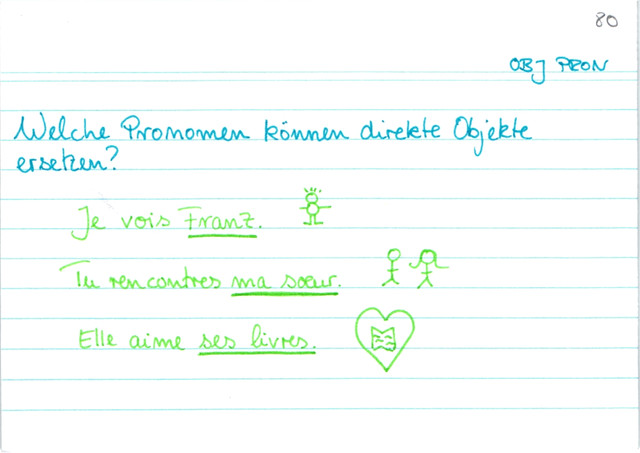 80
OBJ PRON
Welche Pronomen können direkte Objekte
ersetzen?
Je vois Franz.
Tu rencontres ma sœur.
Elle aime ses livres.